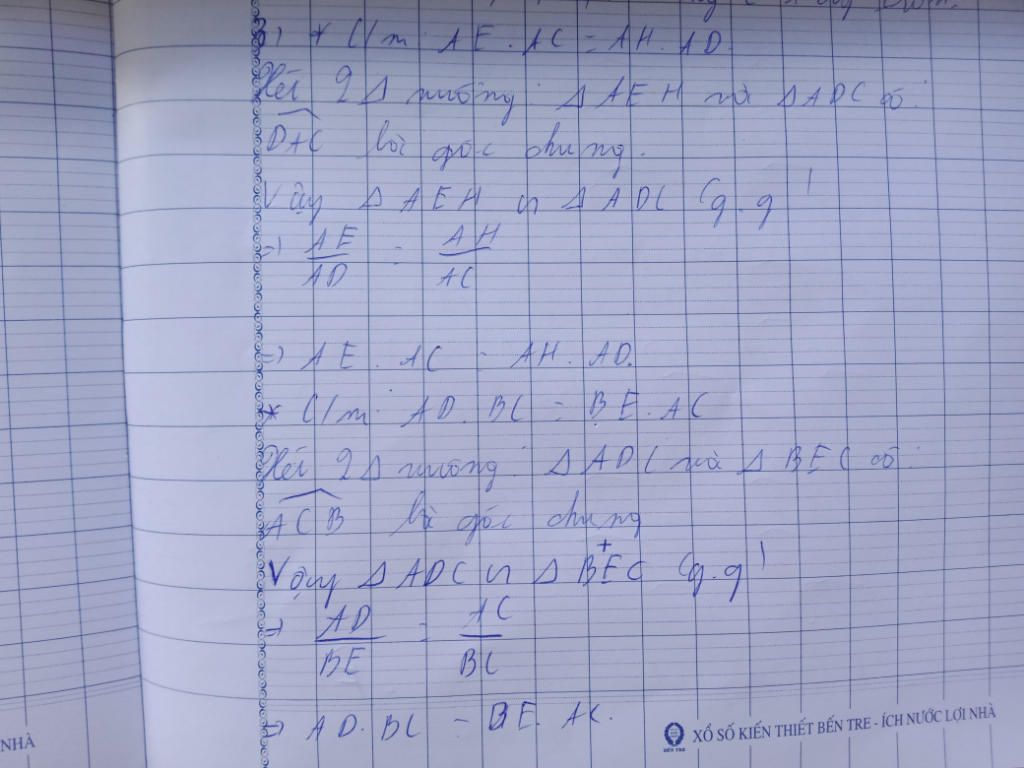 b) * C/m: AE.AC = AH.AD
Xét 2Δ vuông: ΔAEH và ΔADC có:
DAC là góc chung.
Vậy ΔAEH ∽ ΔADC (g.g)
=> AE/AD = AH/AC
=> AE.AC = AH.AD.
* C/m: AD.BC = BE.AC
Xét 2Δ vuông: ΔADC và ΔBEC có:
ACB là góc chung
Vậy ΔADC ∽ ΔBEC (g.g)
=> AD/BE = AC/BC
=> AD.BC = BE.AC.
NHÀ
XỔ SỐ KIẾN THIẾT BẾN TRE - ÍCH NƯỚC LỢI NHÀ
BẾN TRE